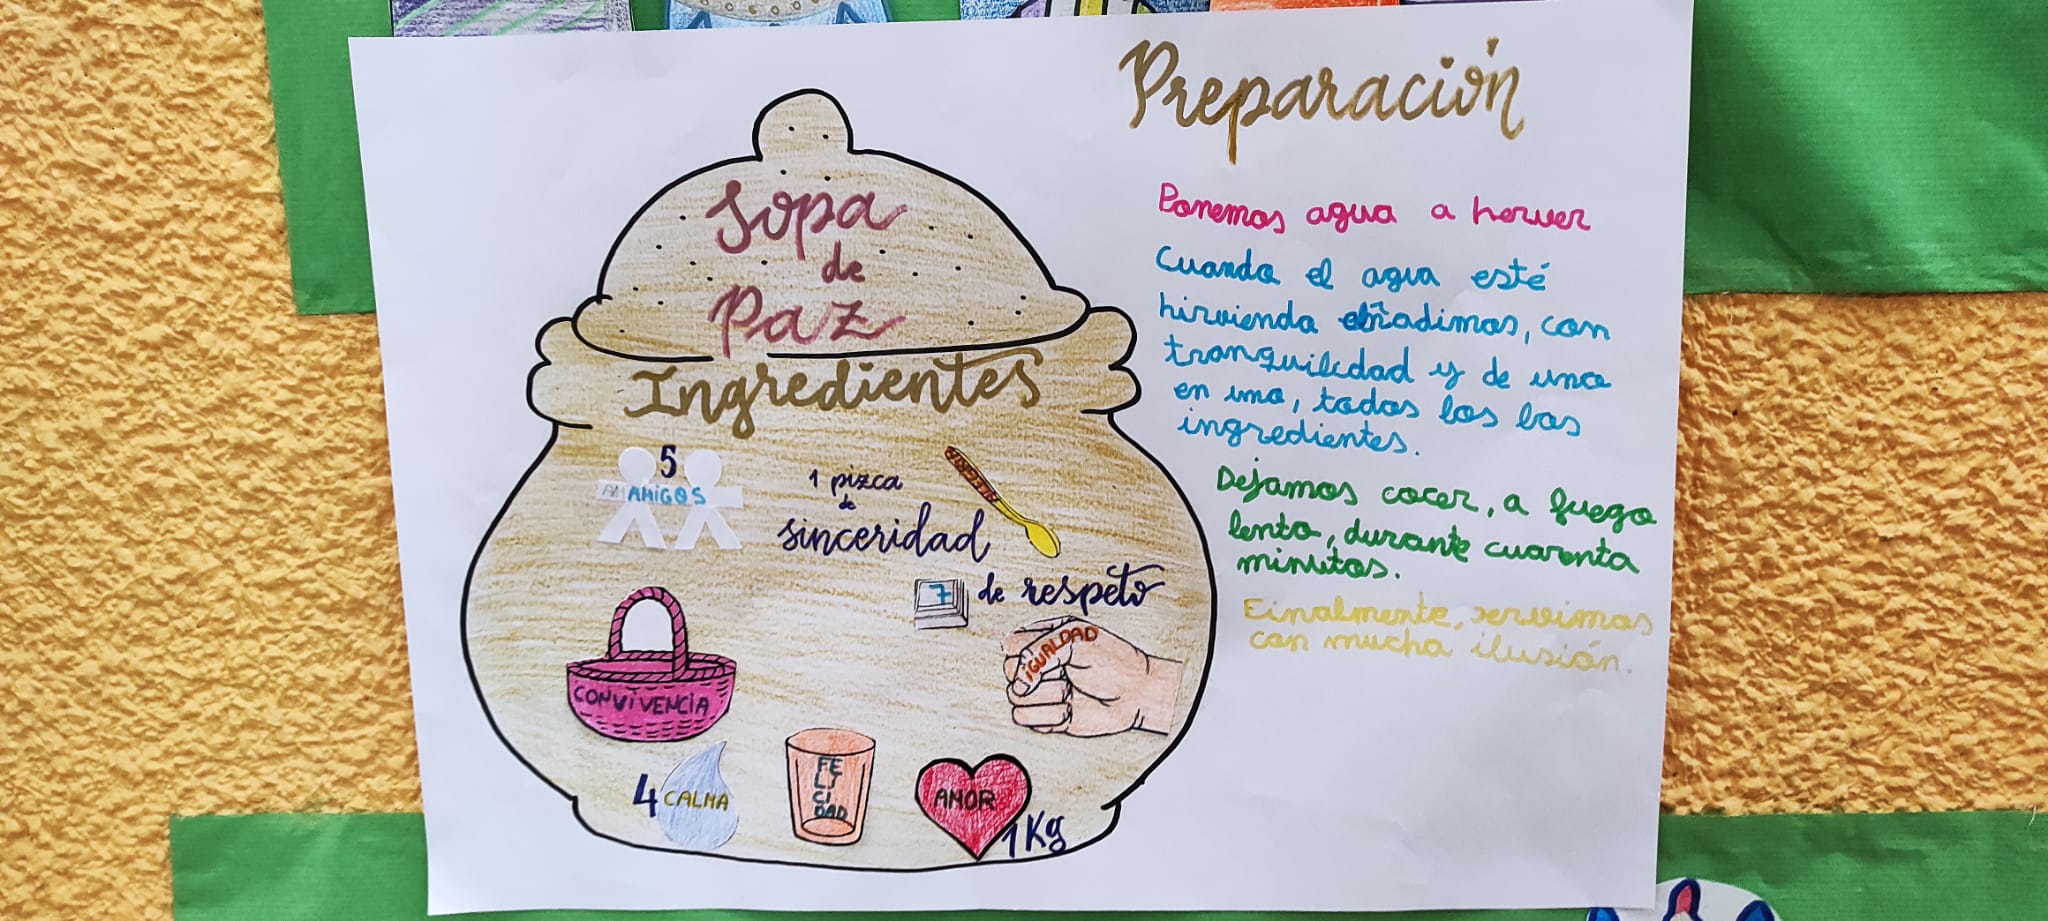 Sopa
de
Paz
Ingredientes
5
AMIGOS
1 pizca
de
sinceridad
7 de respeto
IGUALDAD
CONVIVENCIA
4 CALMA
FE
LI
CI
DAD
AMOR
1 Kg
Preparación
Ponemos agua a herver
Cuando el agua esté
hirviendo añadimos, con
tranquilidad y de uno
en uno, todos los los
ingredientes.
Dejamos cocer, a fuego
lento, durante cuarenta
minutos.
Finalmente, servimos
con mucha ilusión.